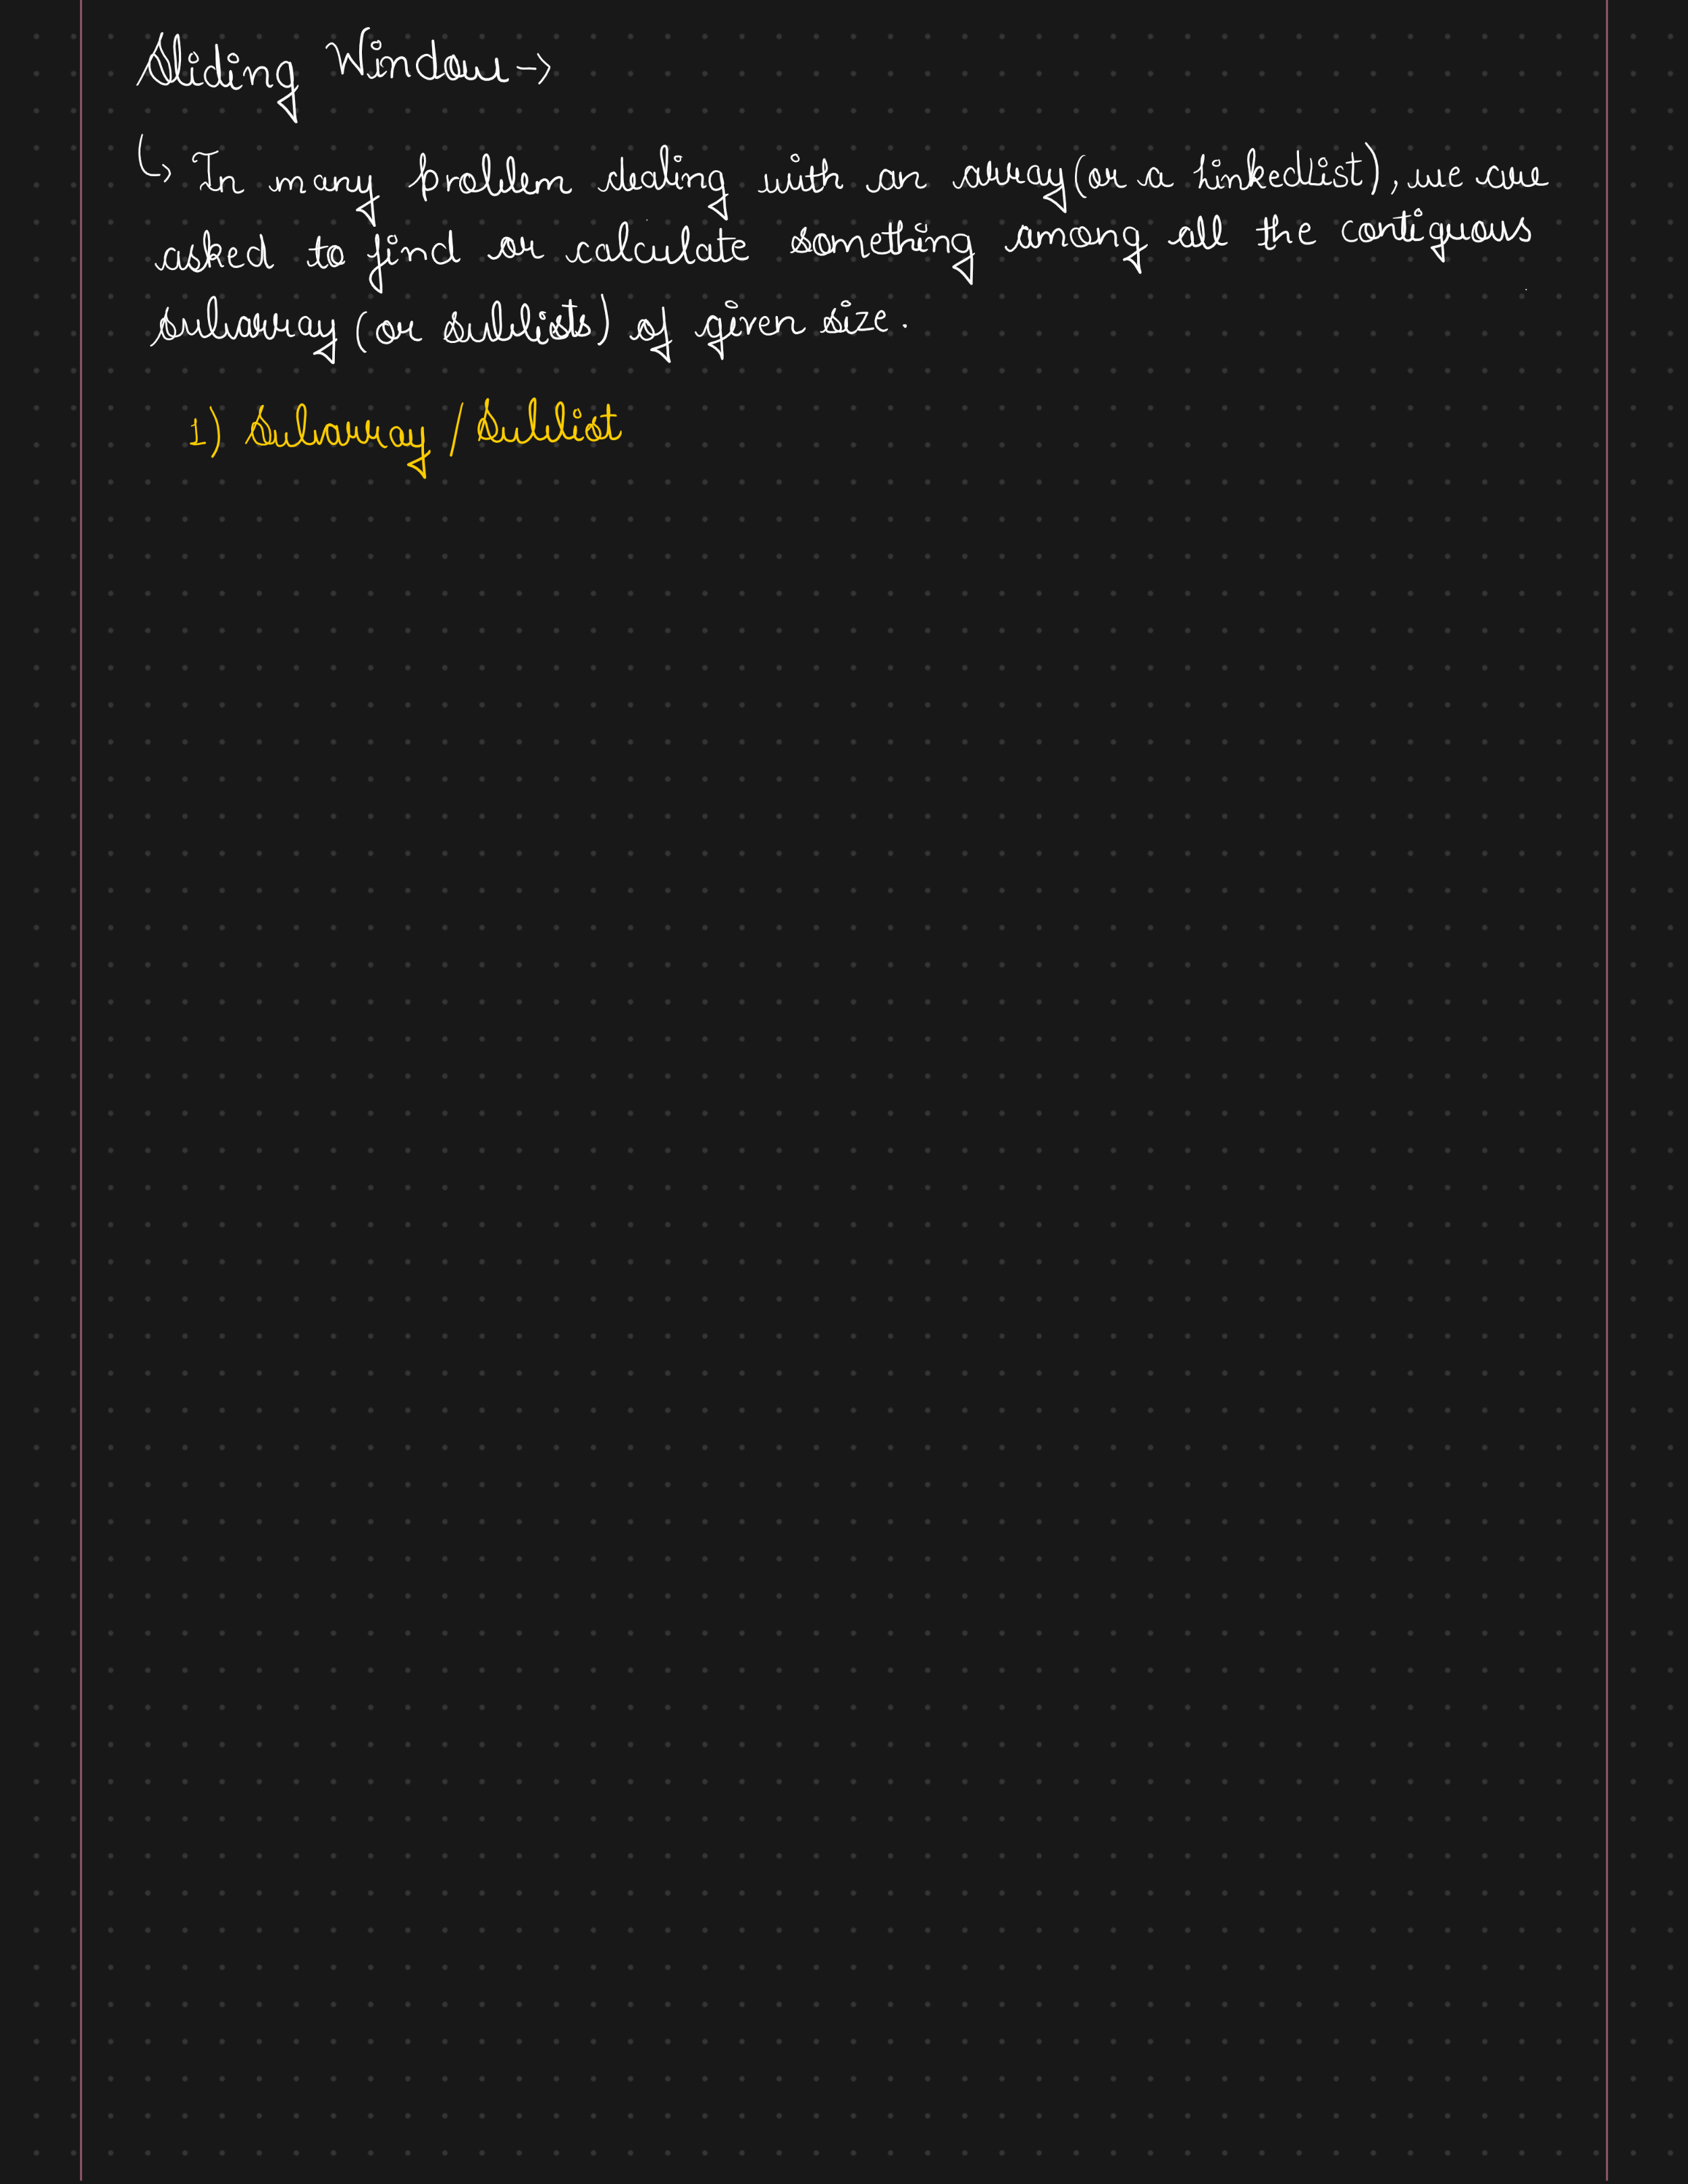 Sliding Window →
↳ In many problem dealing with an array (or a LinkedList), we are
asked to find or calculate something among all the contiguous
subarray (or sublists) of given size.
1) Subarray / Sublist